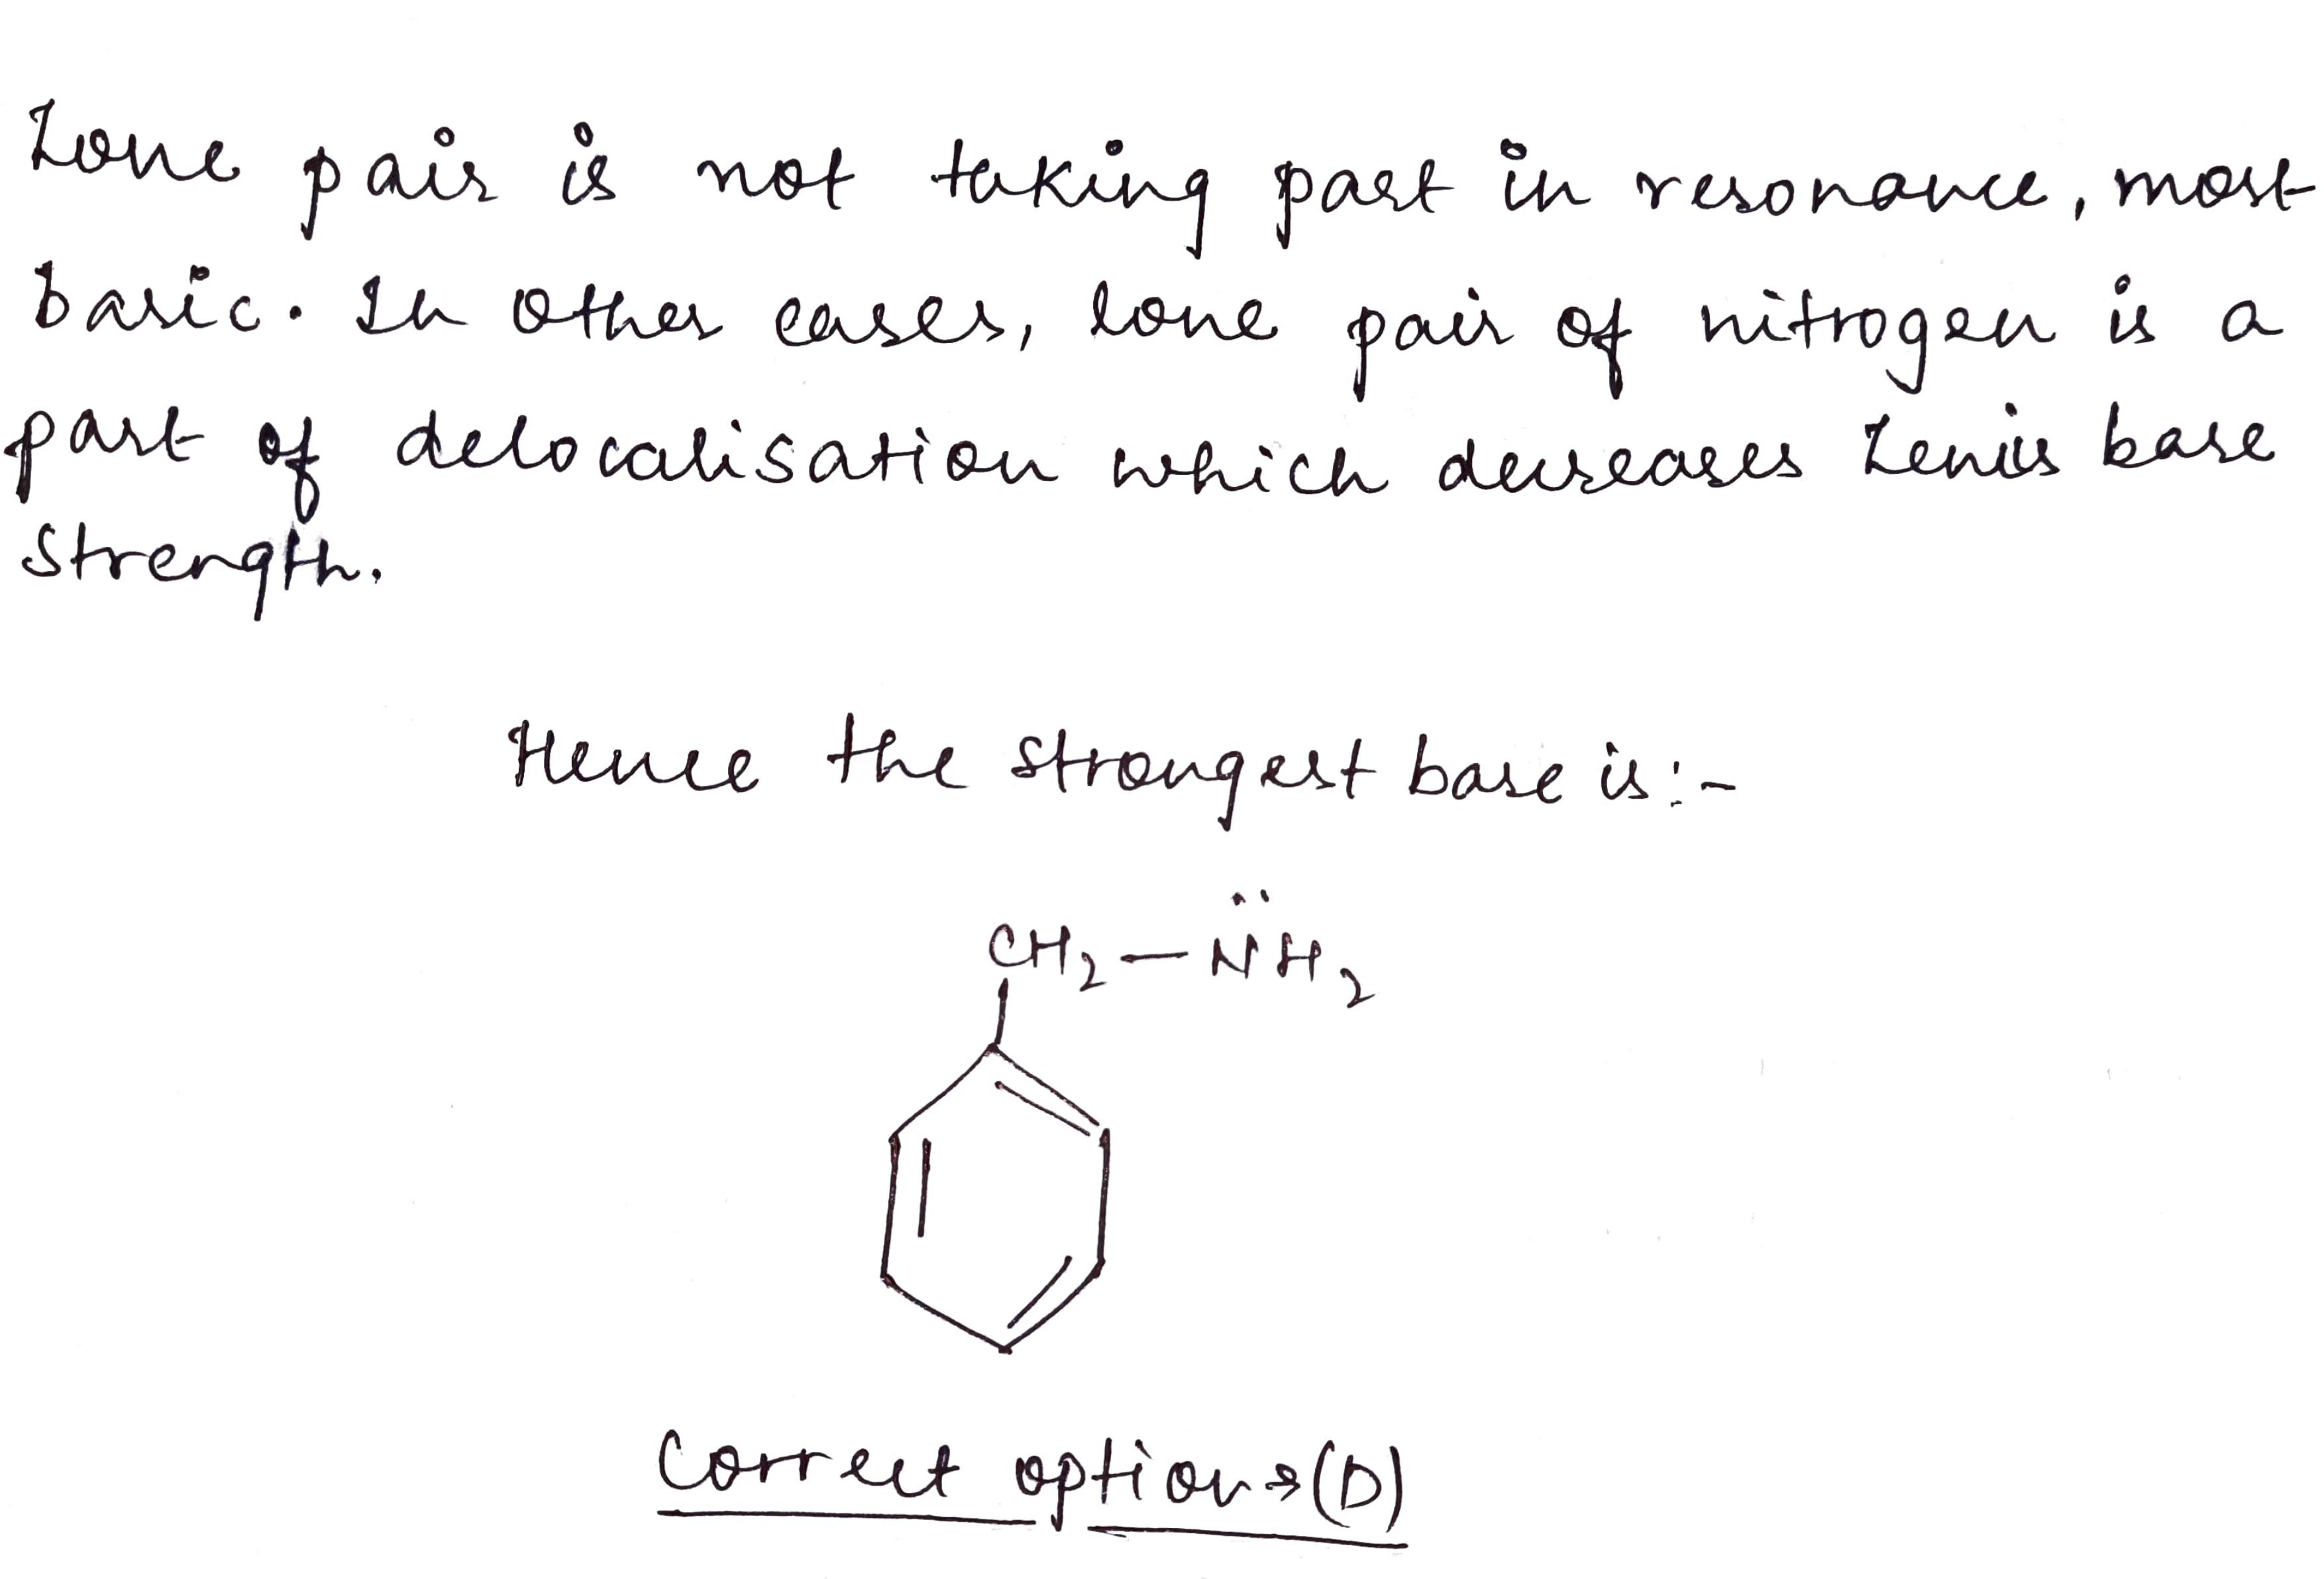 Lone pair is not taking part in resonance, most
basic. In other cases, lone pair of nitrogen is a
part of delocalisation which decreases Lewis base
strength.
Hence the strongest base is:-
CH₂—N̈H₂
Correct option→(D)